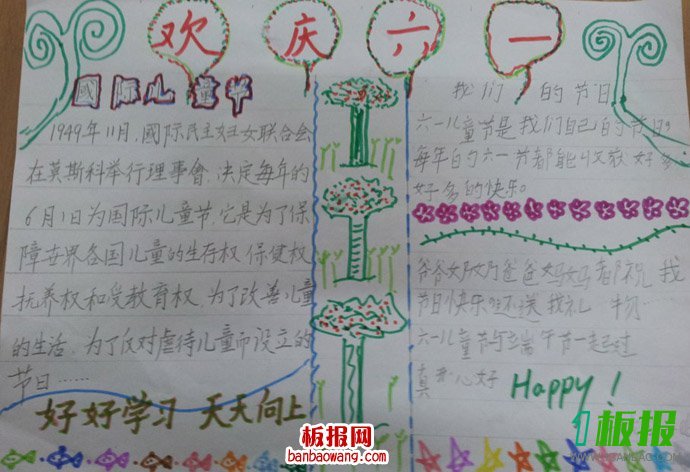 欢庆六一
國际儿童节
1949年11月,國际民主妇女联合会
在莫斯科举行理事會,决定每年的
6月1日为国际儿童节,它是为了保
障世界各国儿童的生存权 保健权
抚养权和受教育权,为了改善儿童
的生活,为了反对虐待儿童而设立的
节日……
好好学习 天天向上
我们的节日
六一儿童节是我们自己的节日。
每年的六一节都能收获好多
好多的快乐。
爷爷奶奶爸爸妈妈都祝我
节日快乐 还送我礼物
六一儿童节与端午节一起过
真开心好
Happy!
板报网
banbaowang.com
1板报